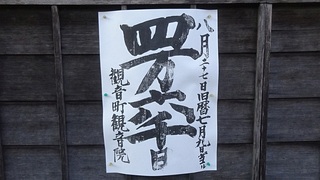 八月二十七日旧暦七月九日
四万六千日
観音町観音院